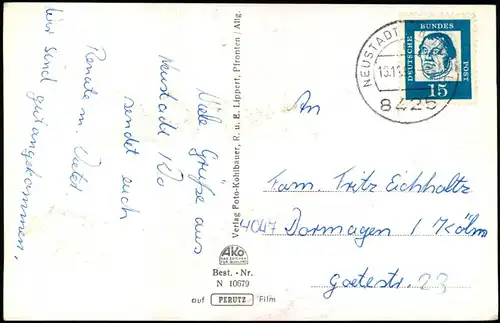 Viele Grüße aus
Neustadt / Do
sendet euch
Renate m. Vater.
Wir sind gut angekommen.
Verlag Foto-Kohlbauer, R. u. E. Lippert, Pfronten / Allg.
AKO
Best. - Nr.
N 10679
auf PERUTZ Film
NEUSTADT
8425
DEUTSCHE BUNDES POST
15
An
Fam. Fritz Eichholtz
4047 Dormagen / Köln
Goetestr. 23